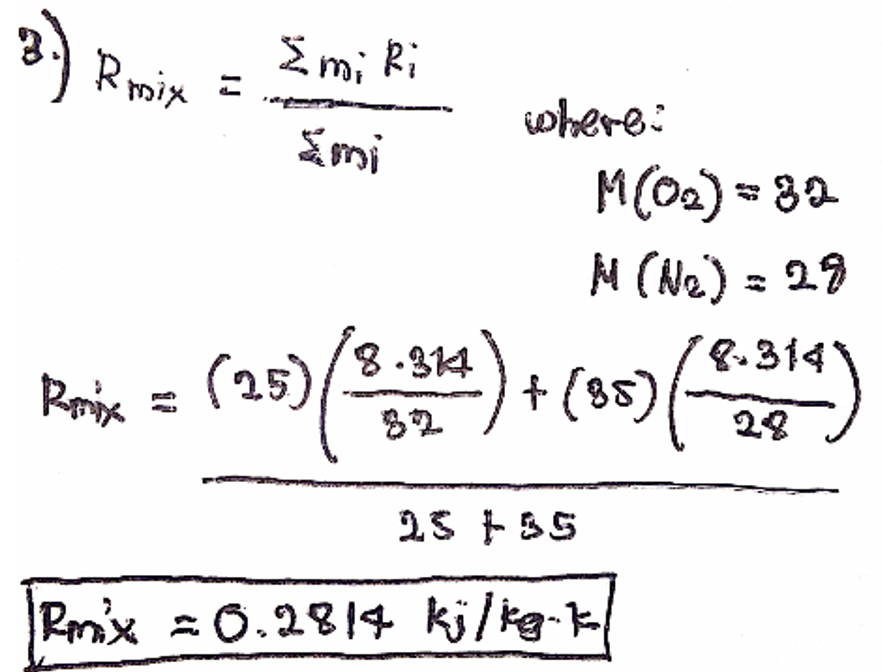 3.) Rmix = Σ mi Ri / Σ mi
where:
M(O2) = 32
M(N2) = 28
Rmix = (25)(8.314/32) + (35)(8.314/28) / 25 + 35
Rmix = 0.2814 kj/kg·k